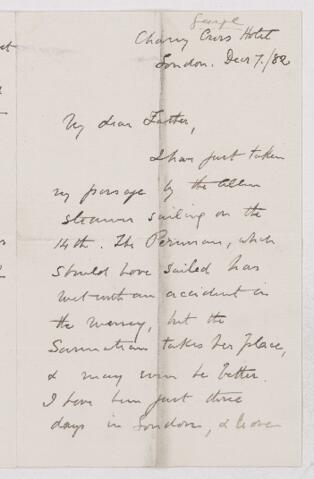 George
Charing Cross Hotel
London. Decr 7./82
My dear Father,
I have just taken
my passage by the Allan
steamer sailing on the
14th. The Peruvian, which
should have sailed has
met with an accident in
the Mersey, but the
Sarmatian takes her place,
& may even be better.
I have been just three
days in London, &